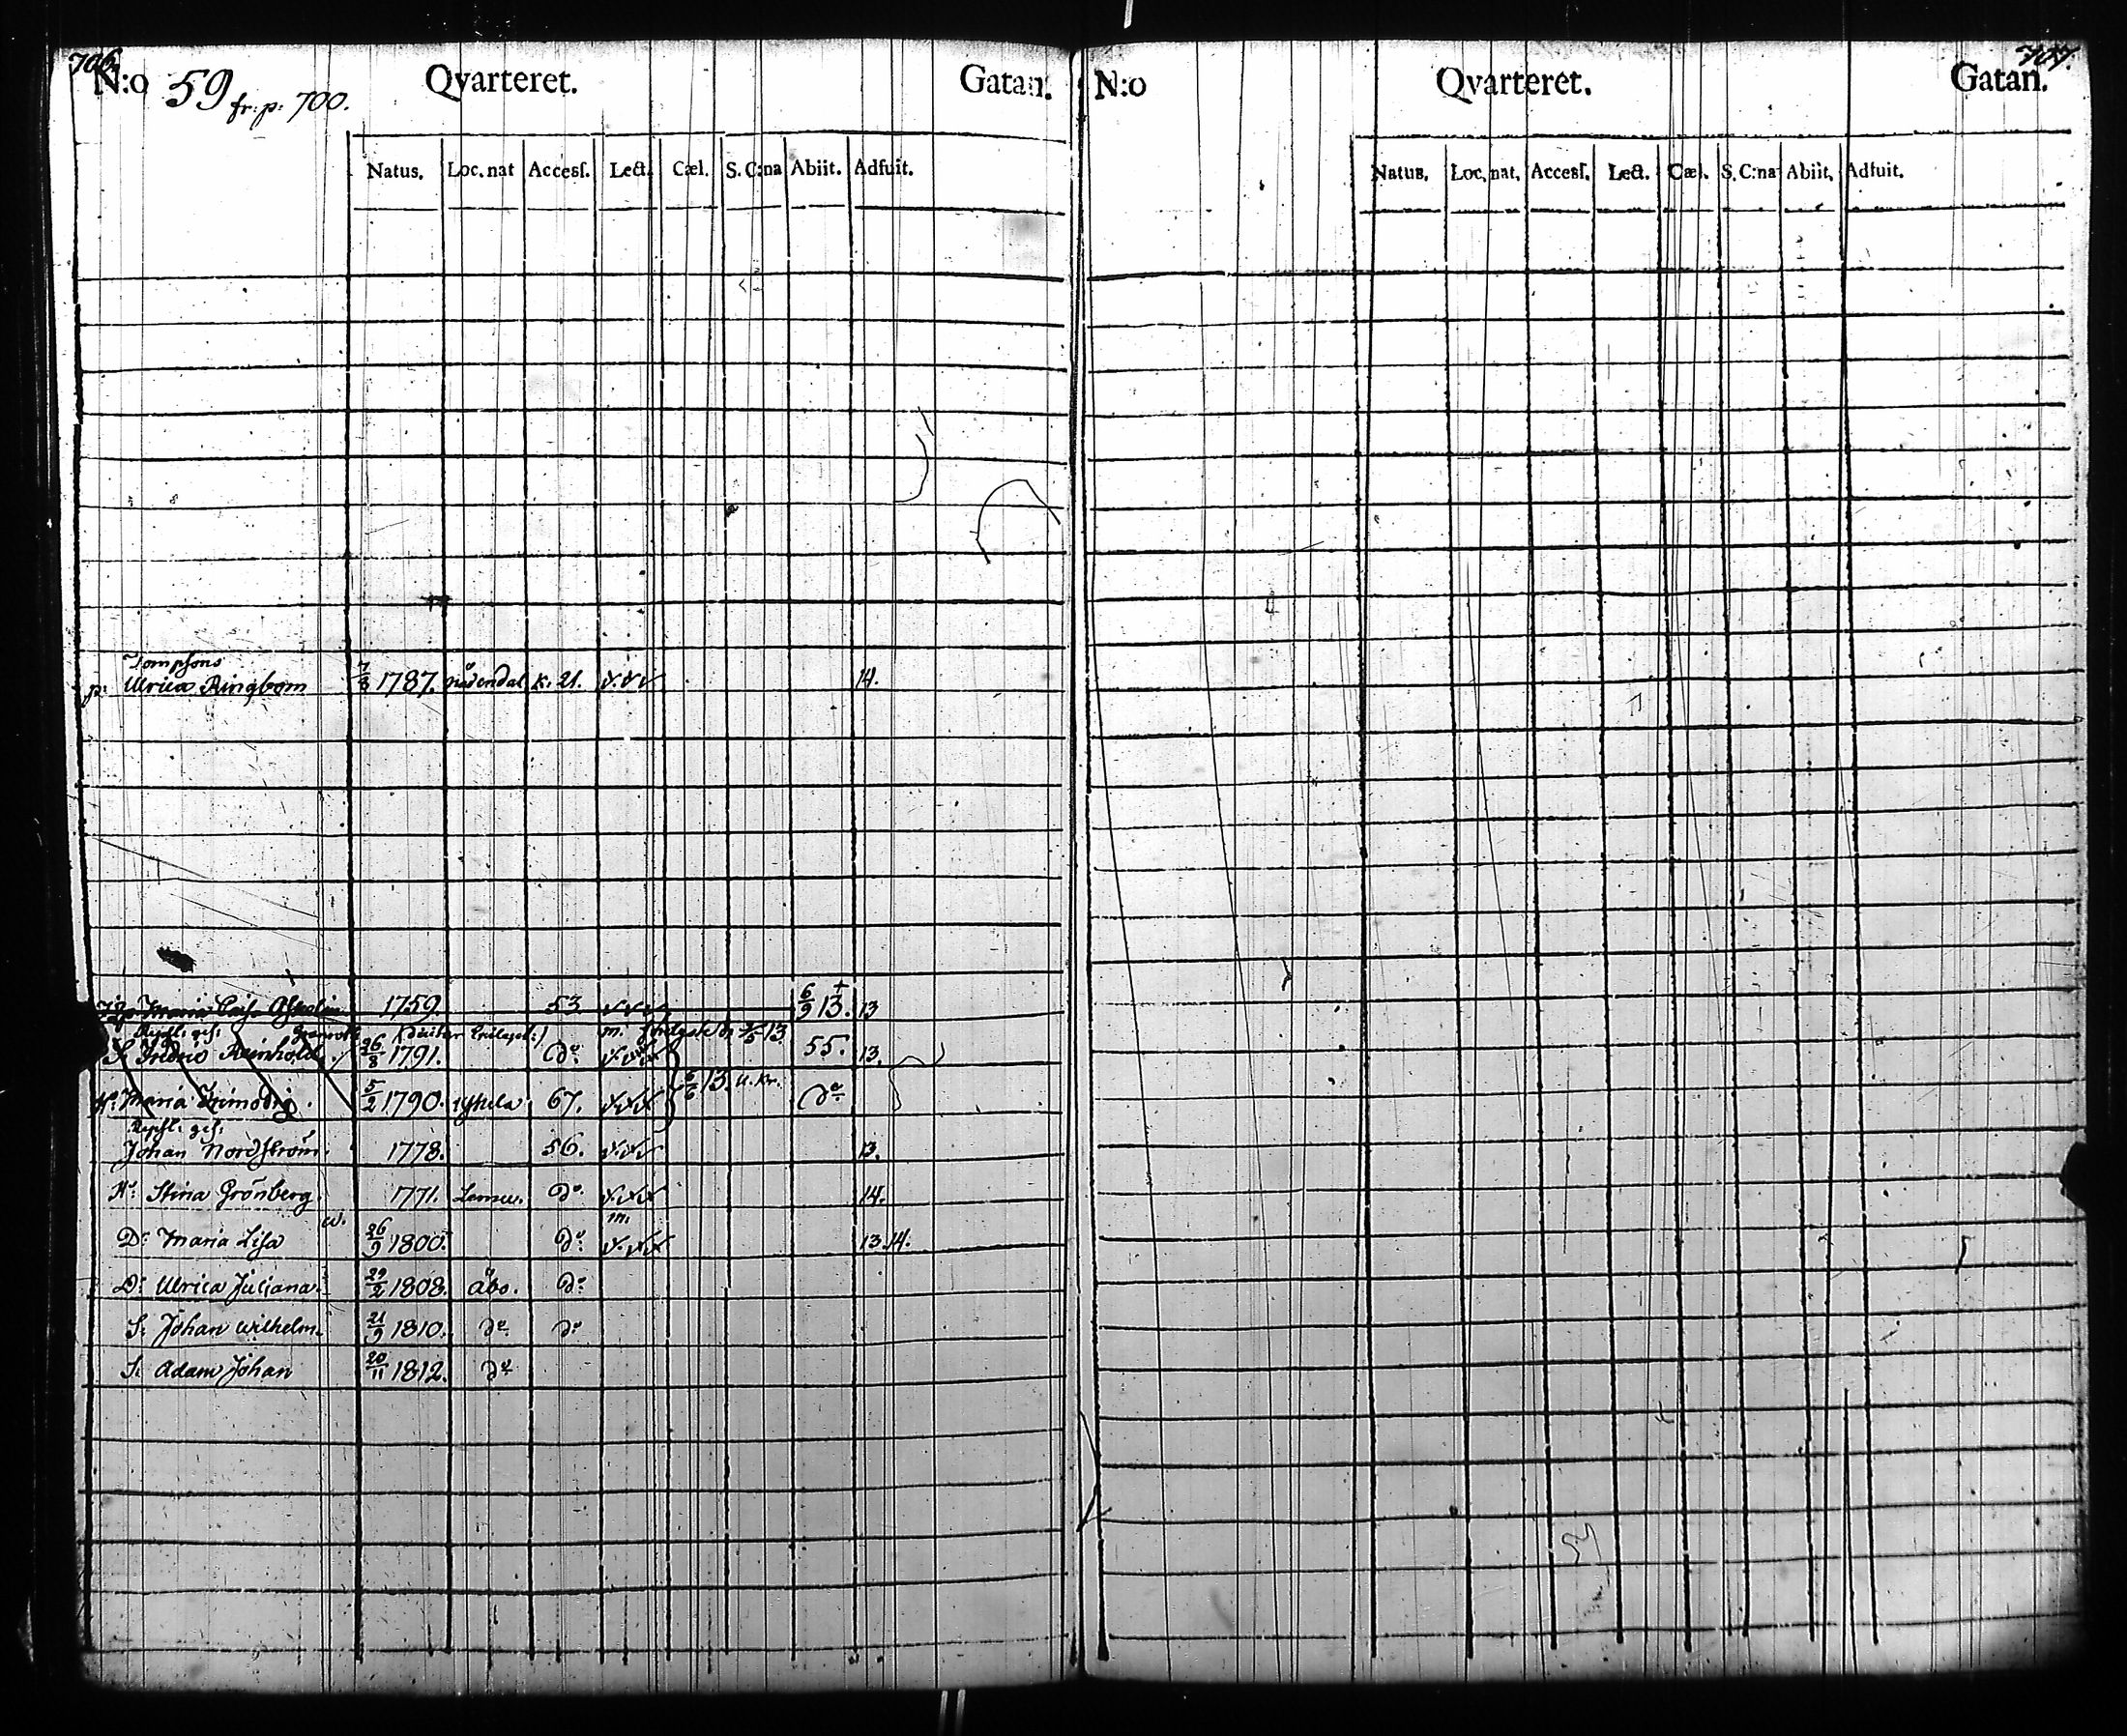 706.
N:o 59 fr: p: 700. Qvarteret. Gatan.
Natus. Loc. nat Accesf. Lect. Cæl. S. C:na Abiit. Adfuit.
Tompsons
p: Ulrica Ringbom 7/8 1787. nådendal K. 21. 14.
Maria Caisa 1759. 53. 6/9 13. † 13
Repsl: ges: m. 13
S. Fredric Reinhold 26/8 1791. do 55. 13.
H: Maria 5/2 1790. 67. 6/6 13. u. kr. do
Repsl: ges:
Johan Nordström. 1778. 56. 13.
H: Stina Grönberg 1771. Lemu. do 14.
w. m.
D: Maria Lisa 26/9 1800. do 13. 14.
D: Ulrica Juliana. 29/2 1808. Åbo. do
S: Johan Wilhelm. 21/9 1810. do do
S: Adam Johan 20/11 1812. do
707.
N:o Qvarteret. Gatan.
Natus. Loc. nat. Accesf. Lect. Cæl. S. C:na Abiit. Adfuit.